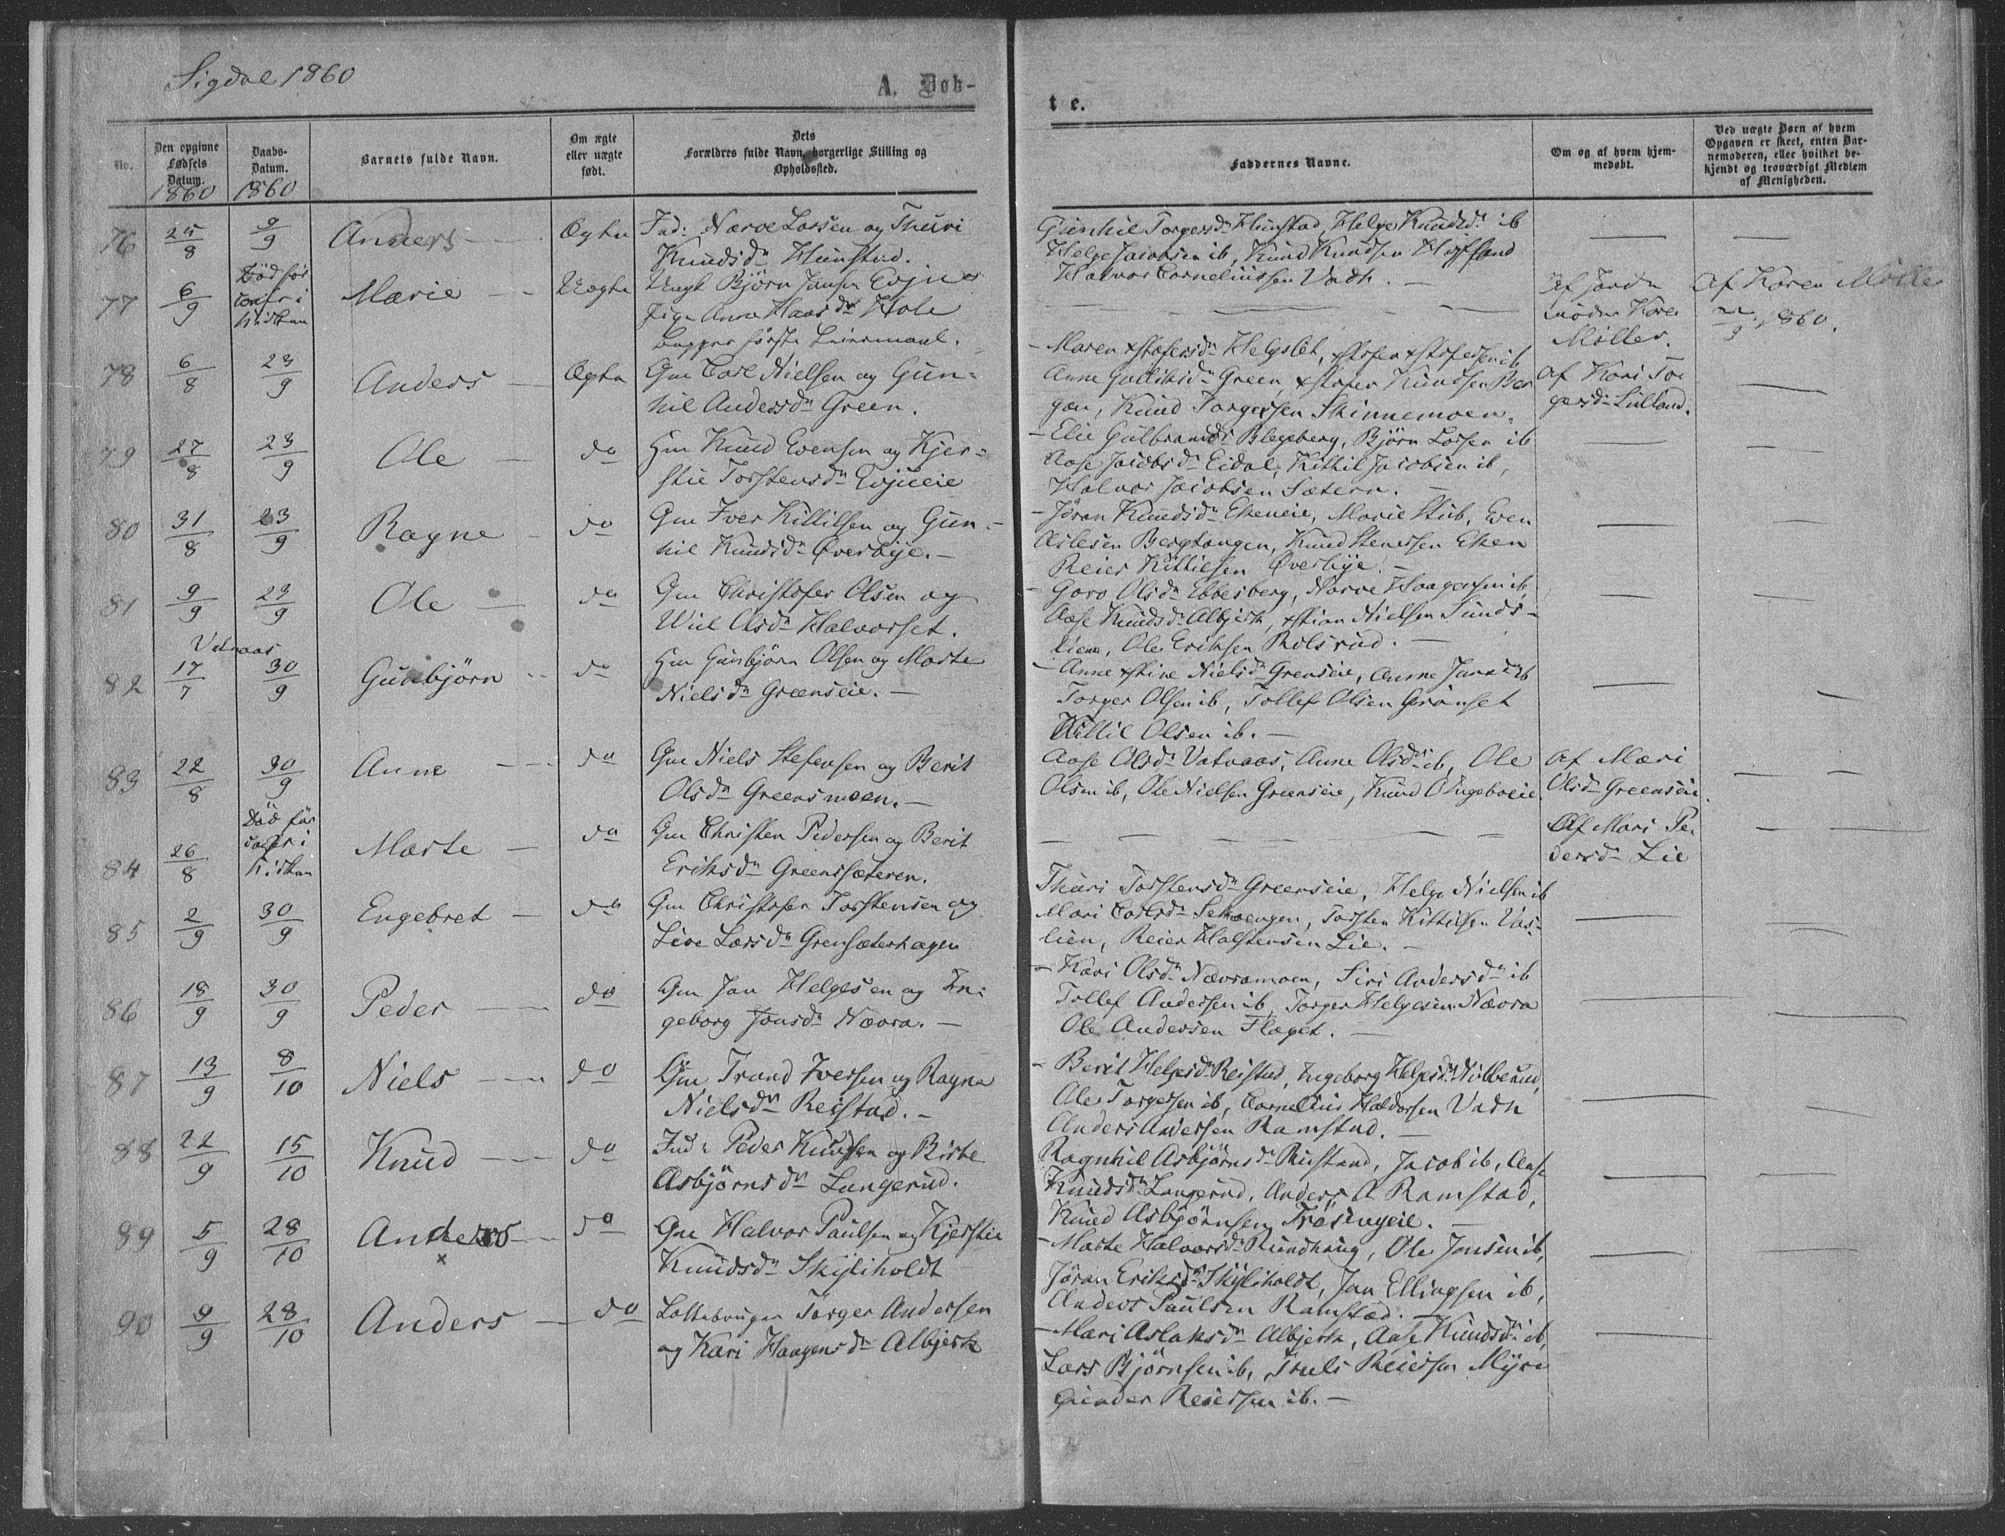 Sigdal 1860
A. Døb-
te.
No.
Den opgivne Fødsels Datum.
1860
Daabs-Datum.
1860
Barnets fulde Navn.
Om ægte eller uægte født.
Dets Forældres fulde Navn, borgerlige Stilling og Opholdssted.
Faddernes Navne.
Om og af hvem hjemmedøbt.
Ved uægte Børn af hvem Opgaven er skeet, enten Barnemoderen, eller hvilket bekjendt og troværdigt Medlem af Menigheden.
76 25/8 9/9 Anders Ægte Ind: Narve Larsen og Thuri
Knudsdn Hunstad.
Gunhil Torgersdn Hunstad, Helge Knudsdn ib
Helge Jacobsen ib, Knud Knudsen Hoffland
Halvor Corneliussen Vadh.
77 6/9 Død før Conf: i Kirken Marie Uægte Ungk Bjørn Jansen Evjue
Pige Anne Haagensdn Hole
Begges første Leiermaal.
Af Jorde
moder Karen
Møller.
Af Karen Møller
/9 1860.
78 6/8 23/9 Anders Ægte Gm Carl Nielsen og Gun-
hil Andersdn Green.
Maren Xstofersdn Helgeset, Xstofer Xstofersen ib
Anne Gulliksdn Green, Xstofer Knudsen Ber
gan, Knud Torgersen Skinnemoen.
Af Kari Tor
gersdn Lulland.
79 27/8 23/9 Ole do Hm Knud Evensen og Kjer-
stie Torstensdn Evjueie
Elie Gulbrandsdn Blegeberg, Bjørn Larsen ib
Aase Jacobsdn Eidal, Kittil Jacobsen ib,
Halvor Jacobsen Sætern.
80 31/8 23/9 Ragne do Gm Iver Kittilsen og Gun-
hil Knudsdn Øverbye.
Jøran Knudsdn Ekeneie, Marie Stub, Even
Aslesen Bergtangen, Knud Stenersen Eken
Reier Kittilsen Øverbye.
81 9/9 23/9 Ole do Gm Christofer Olsen og
Wiel Olsdn Halvorset.
Goro Olsdn Ebbesberg, Narve Haagensen ib,
Aase Knudsdn Albjerk, Xstian Nielsen Sunds-
lien, Ole Eriksen Rolsrud.
Vatnaas
82 17/7 30/9 Gunbjørn do Hm Gunbjørn Olsen og Marte
Nielsdn Greenseie.
Anne Xstine Nielsdn Grenseie, Anne Jansdn ib
Torger Olsen ib, Tollef Olsen Grønset
Kittil Olsen ib.
83 22/8 30/9 Anne do Gm Niels Stefensen og Berit
Olsdn Greensmoen.
Aase Olsdn Vatnaas, Anne Olsdn ib, Ole
Olsen ib, Ole Nielsen Greenseie, Knud O Ingeboeie.
Af Mari
Olsdn Greenseie.
84 26/8 Død før Conf: i Kirken Marte do Gm Christen Pedersen og Berit
Eriksdn Greenssæteren.
Af Mari Pe
dersdn Lie
85 2/9 30/9 Engebret do Gm Christofer Torstensen og
Live Larsdn Grensæterhagen
Thuri Torstensdn Greenseie, Helge Nielsen ib
Mari Carlsdn, Torsten Kittilsen Vas-
lien, Reier Halstensen Lie.
86 18/9 30/9 Peder do Gm Jan Helgesen og In-
geborg Jonsdn Nævra.
Kari Olsdn Nævramoen, Siri Andersdn ib
Tollef Andersen ib, Torger Helgesen Nævra
Ole Andersen Flaget.
87 13/9 8/10 Niels do Gm Trond Iversen og Ragne
Nielsdn Reistad.
Berit Helgesdn Reistad, Ingeborg Helgesdn Nubberud,
Ole Torgersen ib, Cornelius Haldorsen Vadh
Anders Andersen Ramstad.
88 22/9 15/10 Knud do Ind: Peder Knudsen og Birte
Asbjørnsdn Langerud.
Ragnhil Asbjørnsdn Rustand, Jacob ib, Aase
Knudsdn Langerud, Anders A Ramstad,
Knud Asbjørnsen Frøsengeie.
89 5/9 28/10 Anders do Gm Halvor Paulsen og Kjerstie
x
Knudsdn Skyliholdt
Marte Halvorsdn Rundhaug, Ole Jensen ib,
Jøran Eriksdn Skyliholdt, Jan Ellingsen ib,
Anders Paulsen Ramstad.
90 9/9 28/10 Anders do Lottebruger Torger Andersen
og Kari Haagensdn Albjerk
Mari Aslaksdn Albjerk, Aase Knudsdn ib,
Lars Bjørnsen ib, Truls Reiersen Myre
Gunder Reiersen ib.